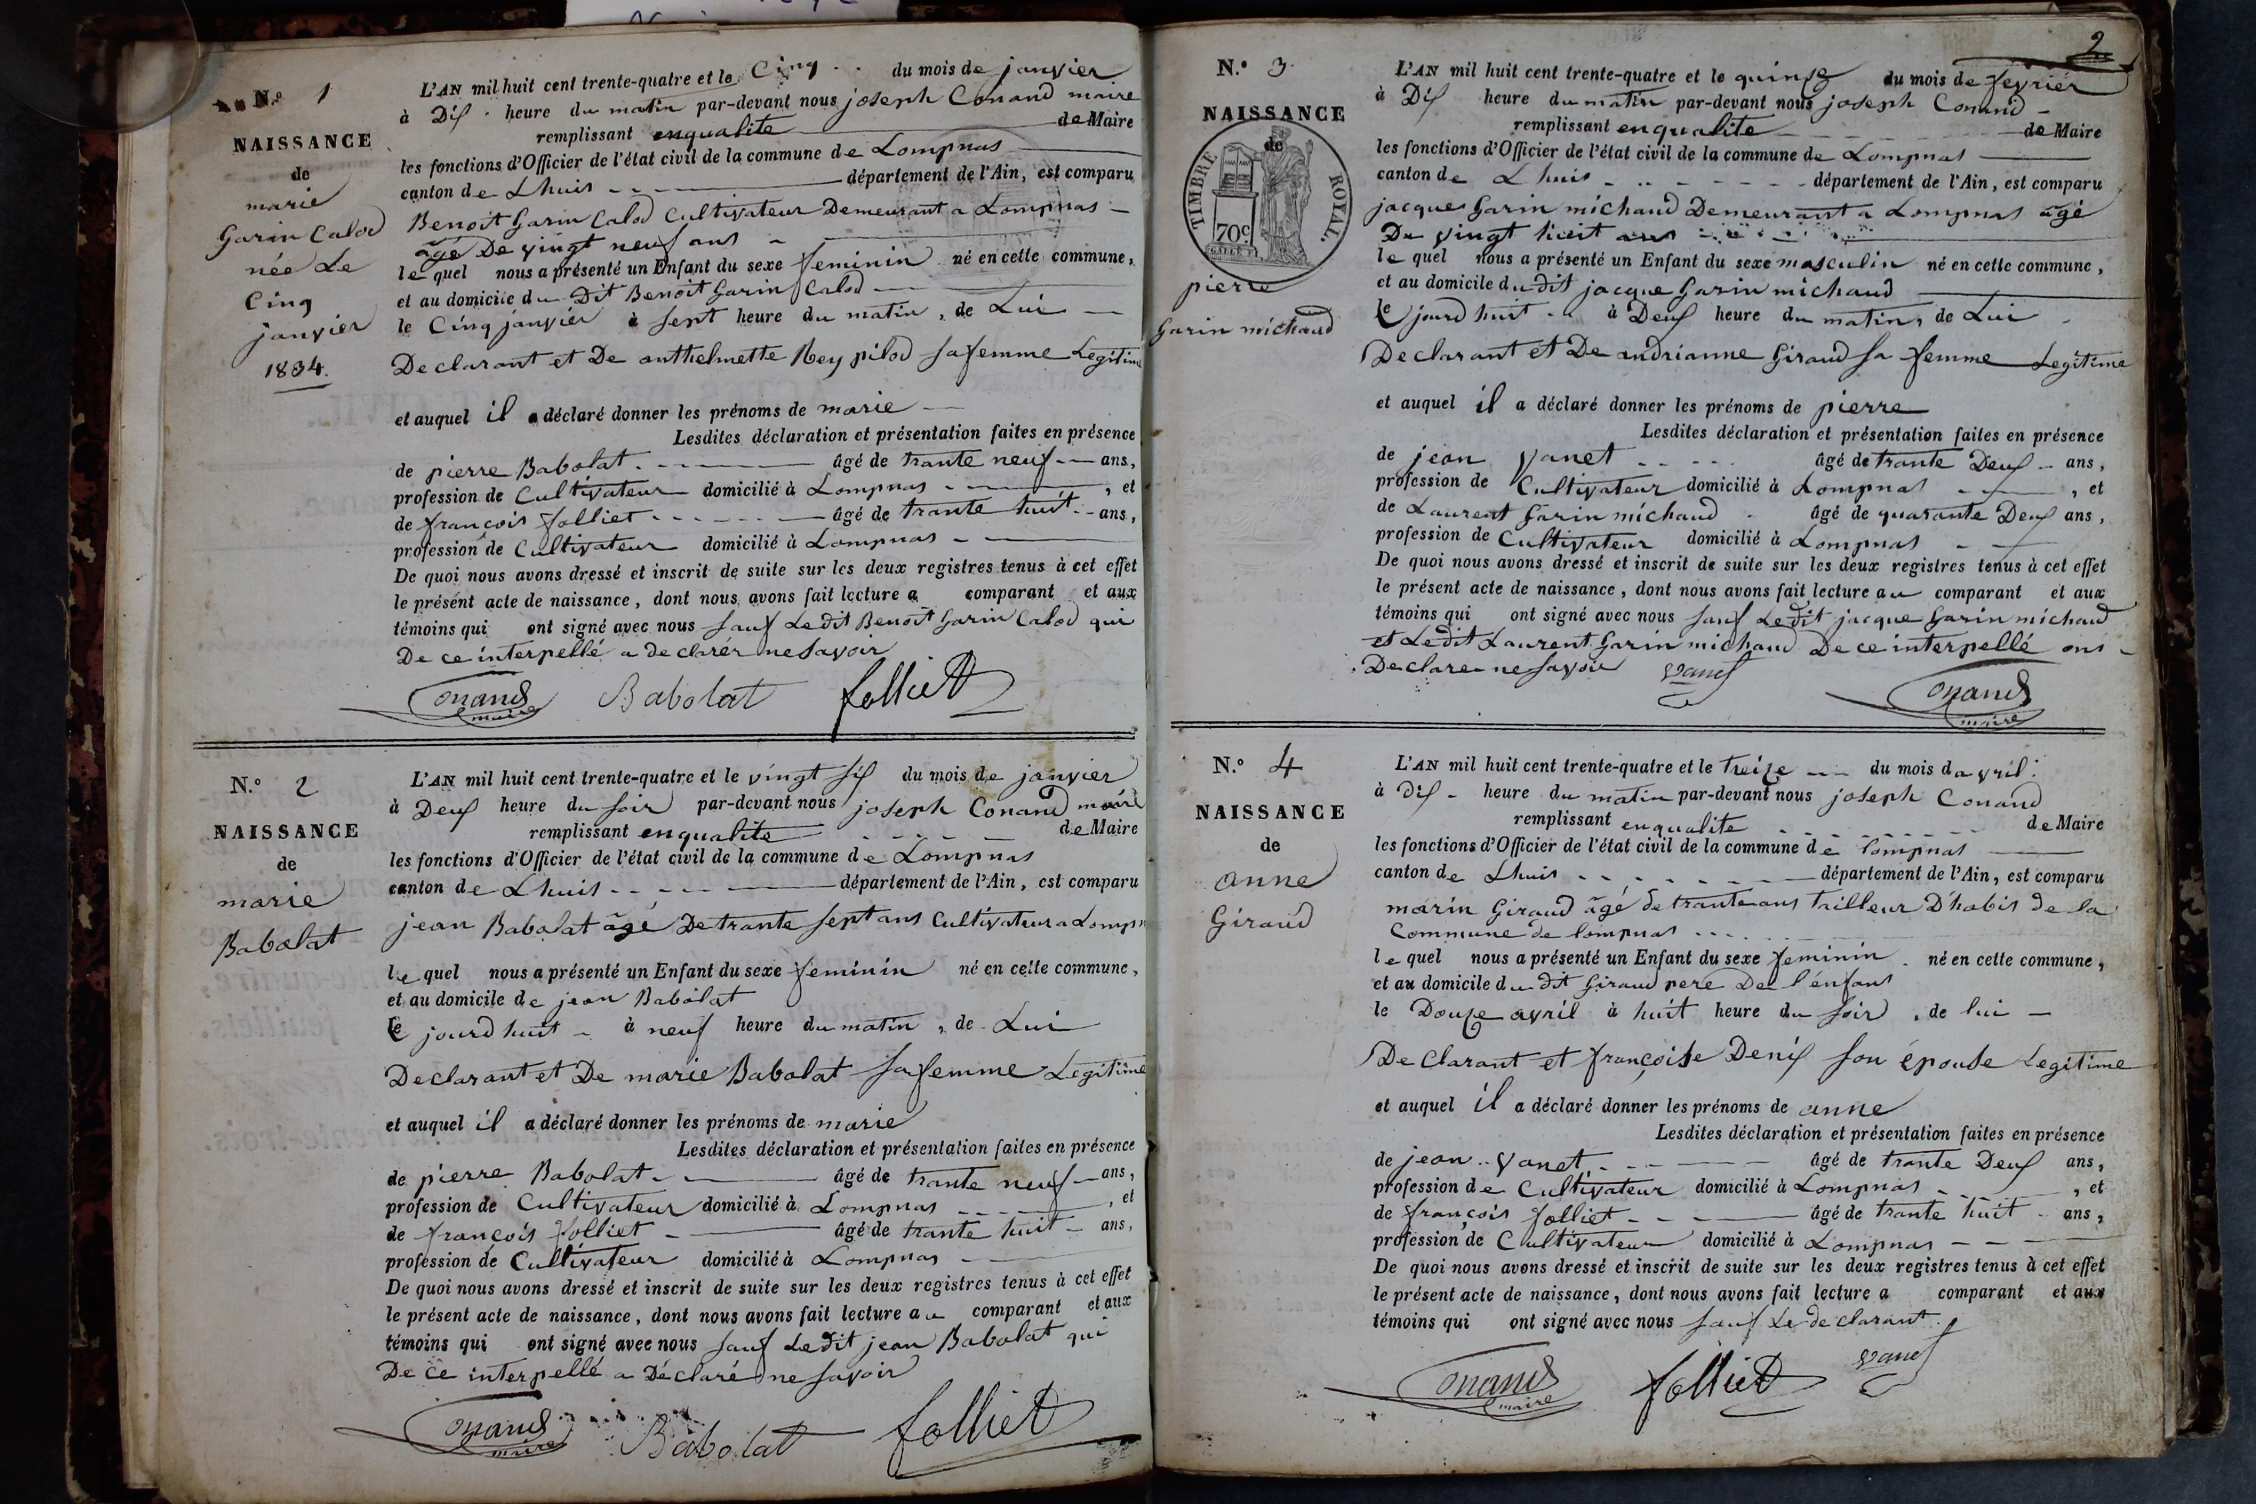 N.º 1
NAISSANCE
de
marie
Garin Calod
née Le
Cinq
janvier
1834.
L'AN mil huit cent trente-quatre et le Cinq du mois de janvier
à Dix heure du matin par-devant nous joseph Conand maire
remplissant enqualite de Maire
les fonctions d'Officier de l'état civil de la commune de Lompnas
canton de Lhuis département de l'Ain, est comparu
Benoit Garin Calod Cultivateur Demeurant a Lompnas
âgé De vingt neuf ans
le quel nous a présenté un Enfant du sexe feminin né en cette commune,
et au domicile du Dit Benoit Garin Calod
le Cinq janvier à sept heure du matin, de Lui
Declarant et De anthelmette Rey pilod sa femme Legitime
et auquel il a déclaré donner les prénoms de marie
Lesdites déclaration et présentation faites en présence
de pierre Babolat âgé de trante neuf ans,
profession de Cultivateur domicilié à Lompnas, et
de françois folliet âgé de trante huit ans,
profession de Cultivateur domicilié à Lompnas
De quoi nous avons dressé et inscrit de suite sur les deux registres tenus à cet effet
le présent acte de naissance, dont nous avons fait lecture a comparant et aux
témoins qui ont signé avec nous sauf Ledit Benoit Garin Calod qui
De ce interpellé a declarér ne savoir
Conand maire Babolat folliet
N.º 2
NAISSANCE
de
marie
Babolat
L'AN mil huit cent trente-quatre et le vingt six du mois de janvier
à Deux heure du soir par-devant nous joseph Conand maire
remplissant enqualite de Maire
les fonctions d'Officier de l'état civil de la commune de Lompnas
canton de Lhuis département de l'Ain, est comparu
jean Babolat âgé De trante sept ans Cultivateur a Lompn
le quel nous a présenté un Enfant du sexe feminin né en cette commune,
et au domicile de jean Babolat
le jourd huit à neuf heure du matin, de Lui
Declarant et De marie Babolat sa femme Legitime
et auquel il a déclaré donner les prénoms de marie
Lesdites déclaration et présentation faites en présence
de pierre Babolat âgé de trante neuf ans,
profession de Cultivateur domicilié à Lompnas, et
de françois folliet âgé de trante huit ans,
profession de Cultivateur domicilié à Lompnas
De quoi nous avons dressé et inscrit de suite sur les deux registres tenus à cet effet
le présent acte de naissance, dont nous avons fait lecture au comparant et aux
témoins qui ont signé avec nous sauf Ledit jean Babolat qui
De ce interpellé a Déclaré ne savoir
Conand maire Babolat folliet
2
N.º 3
NAISSANCE
de
TIMBRE ROYAL.
70c
pierre
Garin michaud
L'AN mil huit cent trente-quatre et le quinze du mois de fevriér
à Dix heure du matin par-devant nous joseph Conand
remplissant enqualite de Maire
les fonctions d'Officier de l'état civil de la commune de Lompnas
canton de Lhuis département de l'Ain, est comparu
jacque Garin michaud Demeurant a Lompnas âgé
De vingt huit ans
le quel nous a présenté un Enfant du sexe masculin né en cette commune,
et au domicile du dit jacque Garin michaud
le jourd huit à Deux heure du matin, de Lui
Declarant et De andrianne Giraud sa femme Legitime
et auquel il a déclaré donner les prénoms de pierre
Lesdites déclaration et présentation faites en présence
de jean vanet âgé de trante Deux ans,
profession de Cultivateur domicilié à Lompnas, et
de Laurent Garin michaud âgé de quarante Deux ans,
profession de Cultivateur domicilié à Lompnas
De quoi nous avons dressé et inscrit de suite sur les deux registres tenus à cet effet
le présent acte de naissance, dont nous avons fait lecture au comparant et aux
témoins qui ont signé avec nous sauf Ledit jacque Garin michaud
et Ledit Laurent Garin michaud De ce interpellé ont
Declare ne savoir vanet Conand maire
N.º 4
NAISSANCE
de
anne
Giraud
L'AN mil huit cent trente-quatre et le treize du mois davril
à dix heure du matin par-devant nous joseph Conand
remplissant enqualite de Maire
les fonctions d'Officier de l'état civil de la commune de lompnas
canton de Lhuis département de l'Ain, est comparu
marin Giraud âgé de trante ans tailleur D'habis de la
Commune de lompnas
le quel nous a présenté un Enfant du sexe feminin né en cette commune,
et au domicile du dit Giraud pere De l'énfant
le Douze avril à huit heure du soir, de lui
De Clarant et françoise Denis son épouse Legitime
et auquel il a déclaré donner les prénoms de anne
Lesdites déclaration et présentation faites en présence
de jean vanet âgé de trante Deux ans,
profession de Cultivateur domicilié à Lompnas, et
de françois folliet âgé de trante huit ans,
profession de Cultivateur domicilié à Lompnas
De quoi nous avons dressé et inscrit de suite sur les deux registres tenus à cet effet
le présent acte de naissance, dont nous avons fait lecture a comparant et aux
témoins qui ont signé avec nous sauf Le declarant
Conand maire folliet vanet